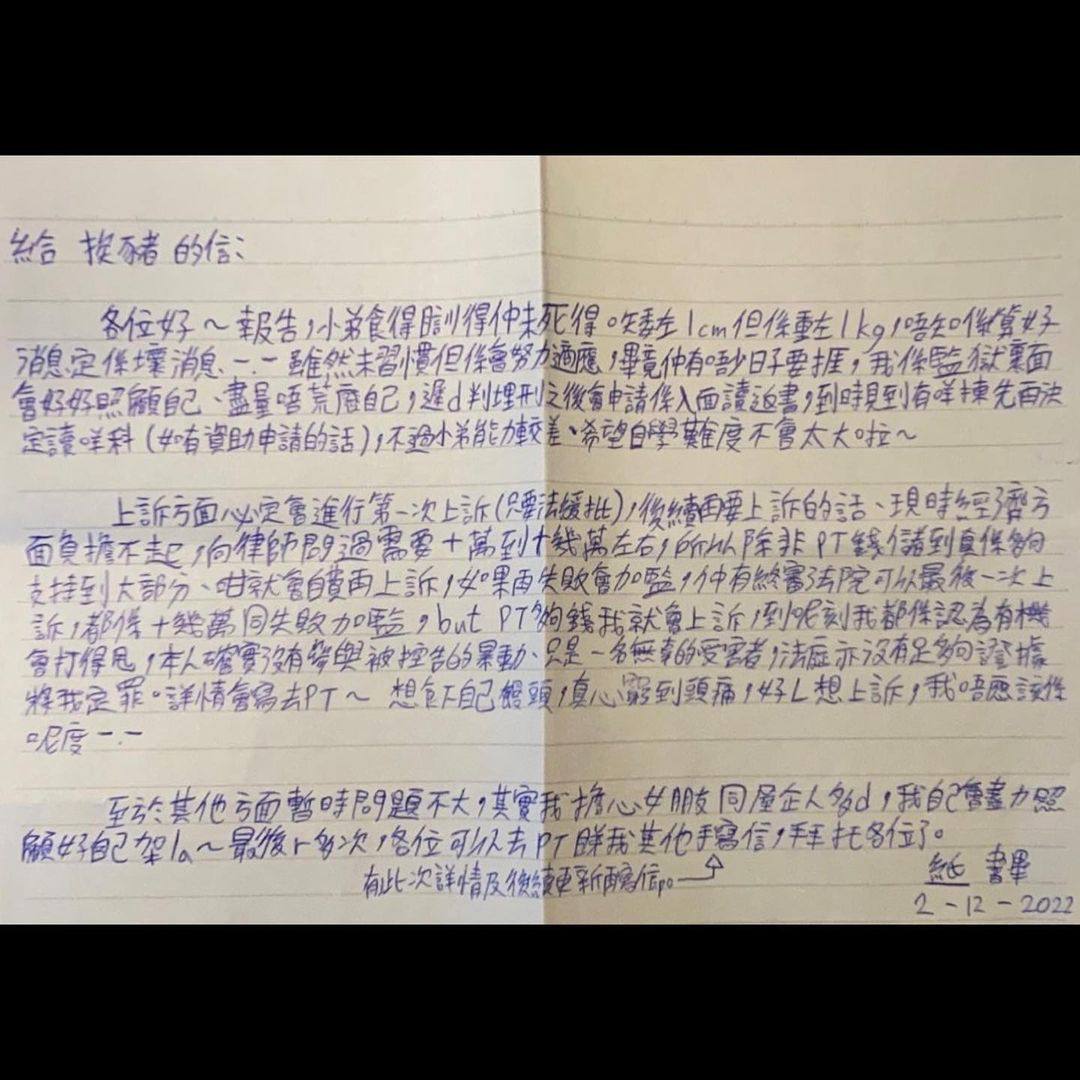 給 挨豬 的信:
各位好～報告,小弟食得瞓得仲未死得。吹委左1cm但係重左1kg,唔知係算好
消息定係壞消息 -.- 雖然未習慣但係會努力適應,畢竟仲有唔少日子要捱,我係監獄裏面
會好好照顧自己、盡量唔荒廢自己,遲d判埋刑之後會申請係入面讀返書,到時見到有咩揀先再決
定讀咩科(如有資助申請的話),不過小弟能力較差、希望自學難度不會太大啦～
上訴方面必定會進行第一次上訴(只要法緩批),後續再要上訴的話、現時經濟方
面負擔不起,向律師問過需要十萬到十幾萬左右,所以除非PT錢儲到真係夠
支持到大部分、咁就會自費再上訴,如果再失敗會加監,仲有終審法院可以最後一次上
訴,都係十幾萬同失敗加監,but PT夠錢我就會上訴,到呢刻我都係認為有機
會打得甩,本人確實沒有參與被控告的暴動、只是一名無辜的受害者,法庭亦沒有足夠證據
將我定罪。詳情會寫去PT～ 想食下自己饅頭,真心窮到頭痛,好L想上訴,我唔應該係
呢度 -.-
至於其他方面暫時問題不大,其實我擔心女朋友同屋企人多d,我自己會盡力照
顧好自己架la～最後r多次,各位可以去PT睇我其他手寫信,拜托各位了。
有此次詳情及後續更新再寫信po
紙 書畢
2-12-2022